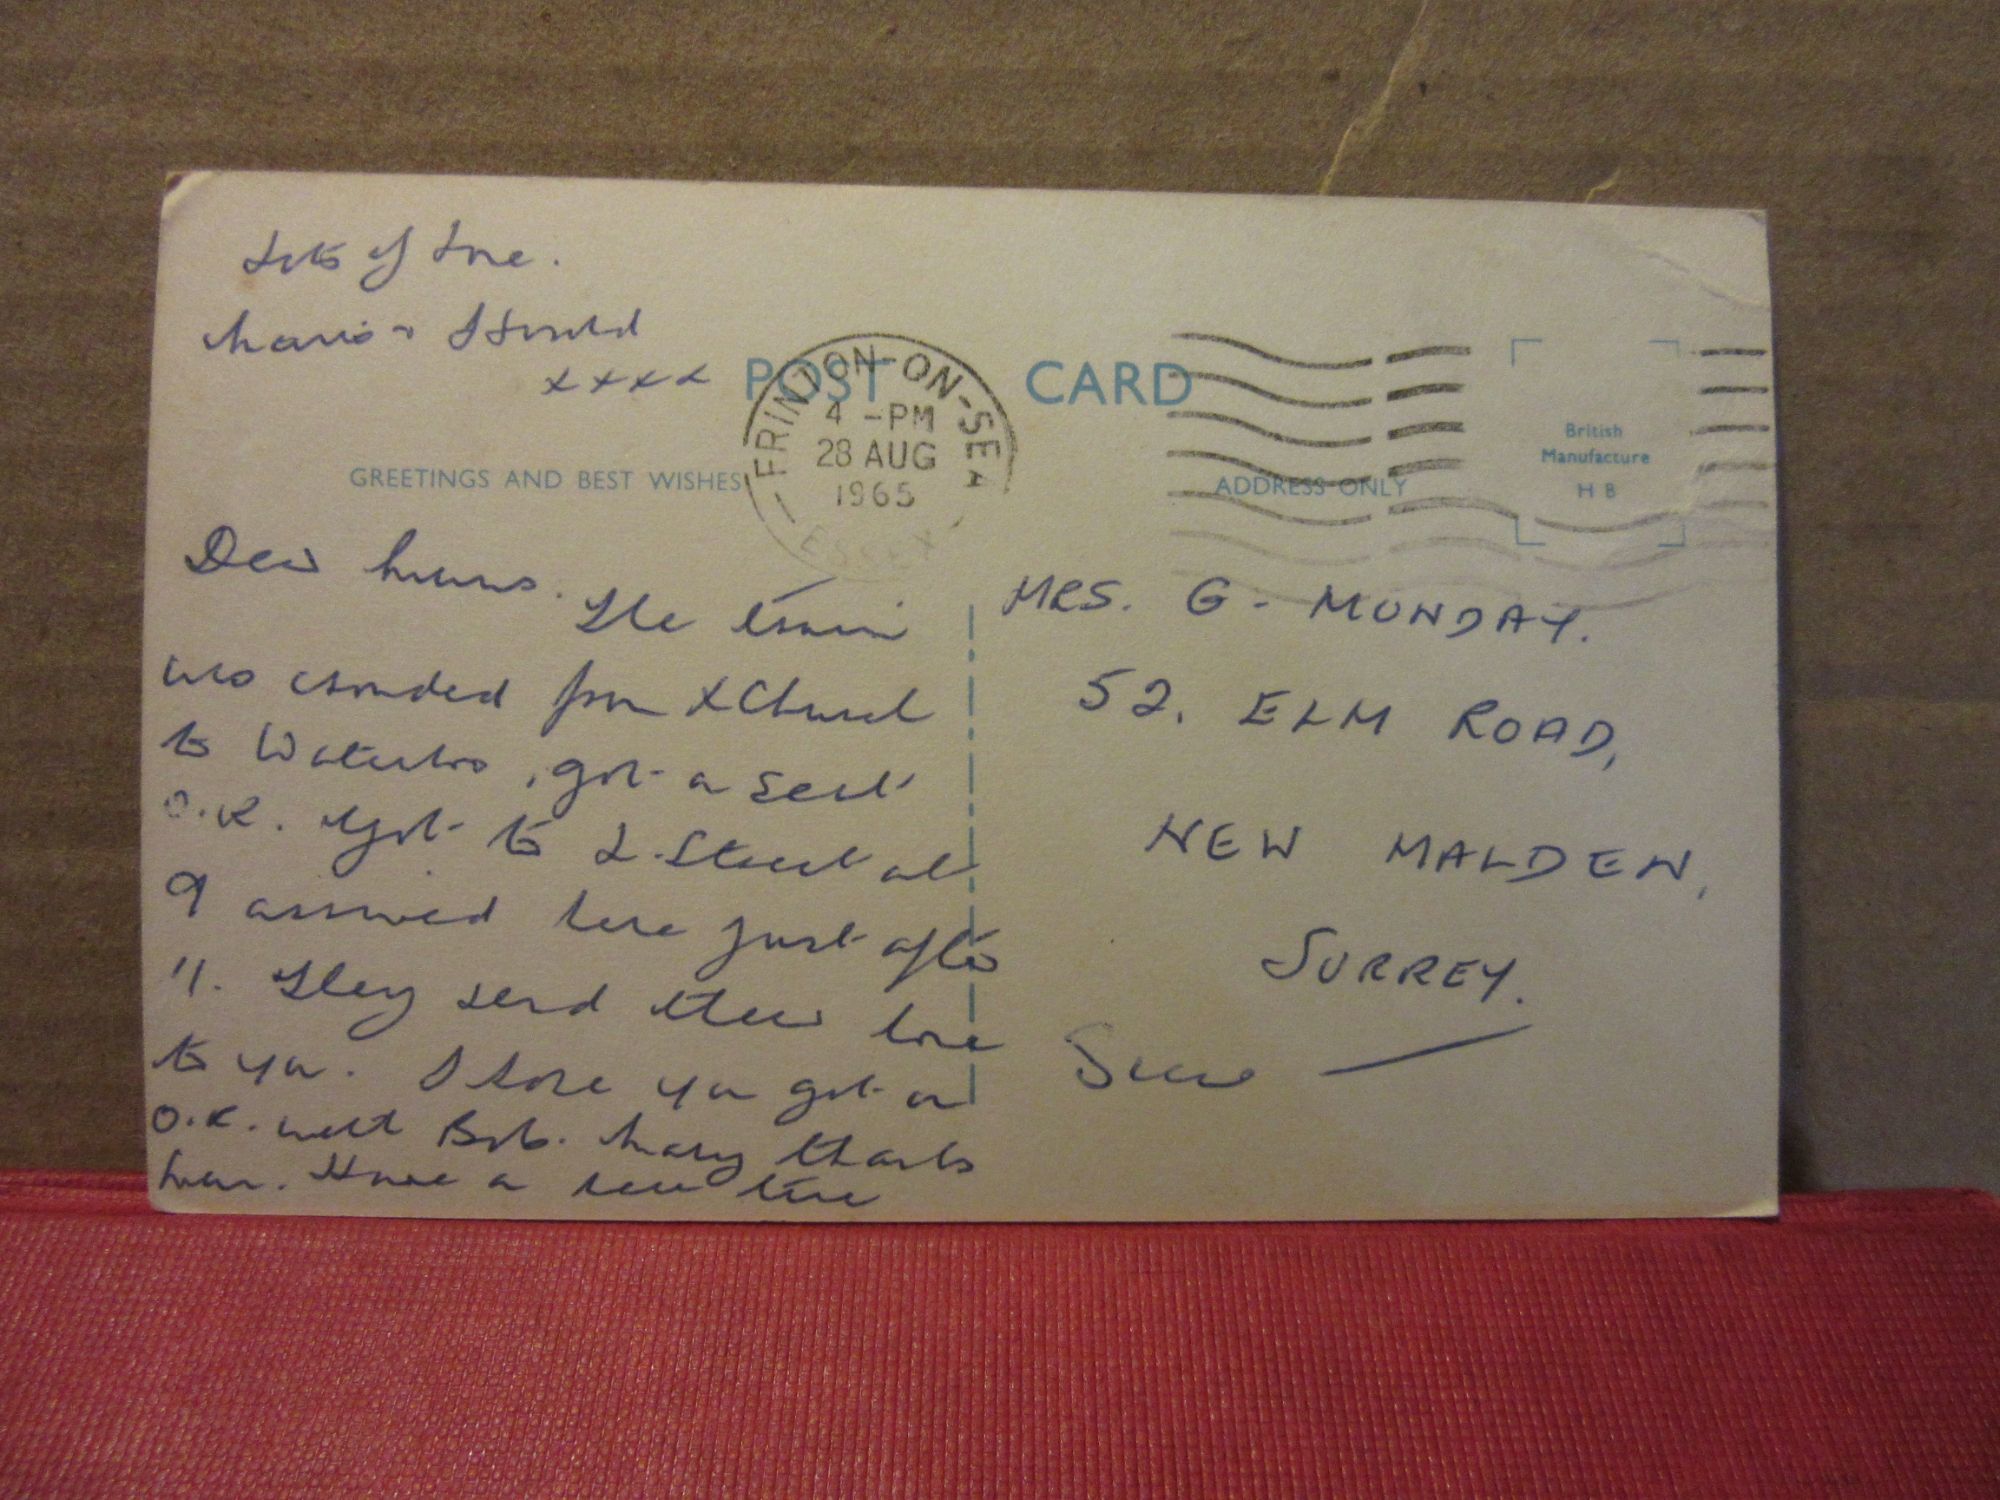 Lots of Love.
xxxx
POST CARD
FRINTON-ON-SEA
4 - PM
28 AUG
1965
ESSEX
British
Manufacture
H B
GREETINGS AND BEST WISHES
ADDRESS ONLY
Dear Mum. The train
was crowded from XChurch
to Waterloo, got a seat
O.K. & got to L. Street at
9 arrived here just after
11. They send their love
to you. I hope you got on
O.K. with Bob. Many thanks
Mum. Have a time
MRS. G. MUNDAY.
52, ELM ROAD,
NEW MALDEN,
SURREY.